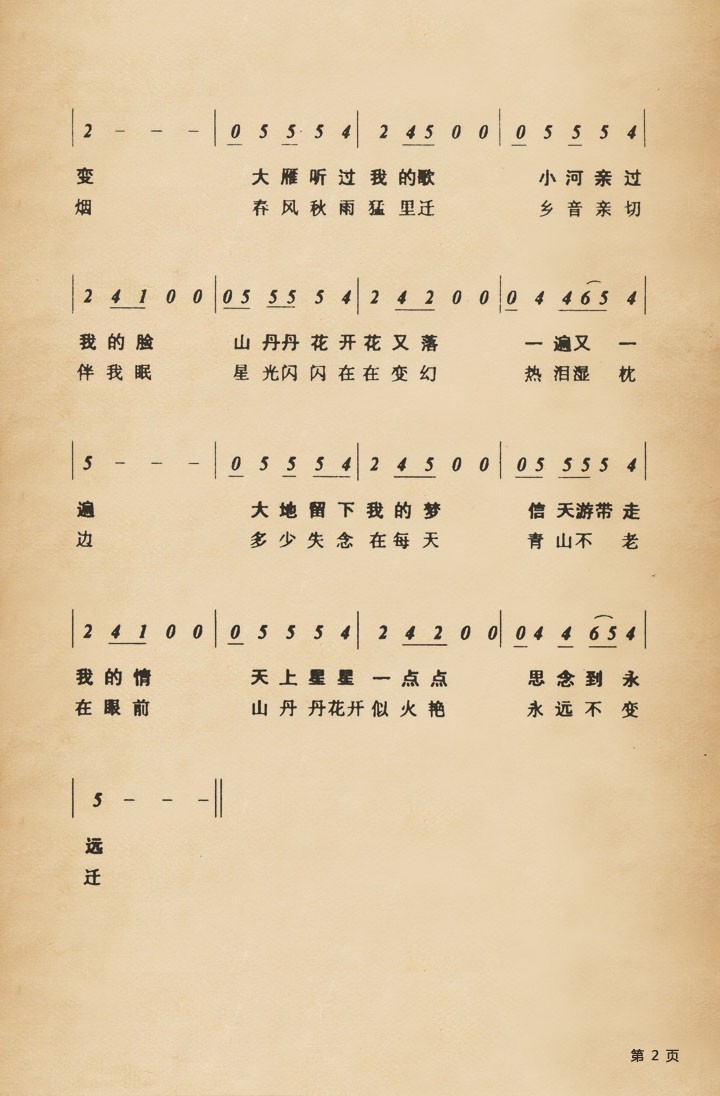 2 － － － | 0 5 5 5 4 | 2 4 5 0 0 | 0 5 5 5 4
变 大雁听过我的歌 小河亲过
烟 春风秋雨猛里迁 乡音亲切
2 4 1 0 0 | 0 5 5 5 5 4 | 2 4 2 0 0 | 0 4 4 6 5 4
我的脸 山丹丹花开花又落 一遍又一
伴我眠 星光闪闪在在变幻 热泪湿枕
5 － － － | 0 5 5 5 4 | 2 4 5 0 0 | 0 5 5 5 5 4
遍 大地留下我的梦 信天游带走
边 多少失念在每天 青山不老
2 4 1 0 0 | 0 5 5 5 4 | 2 4 2 0 0 | 0 4 4 6 5 4
我的情 天上星星一点点 思念到永
在眼前 山丹丹花开似火艳 永远不变
5 － － －
远
迁
第 2 页